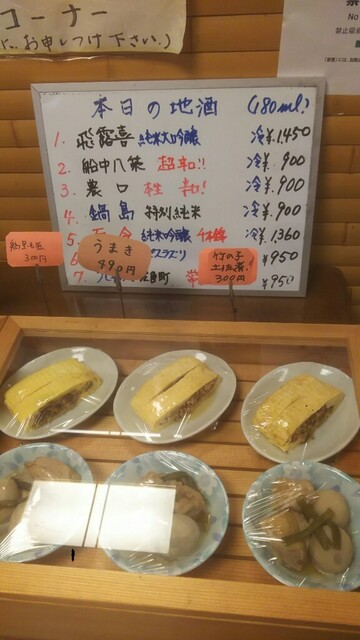 コーナー
に、お申しつけ下さい。)
No
禁止
本日の地酒 (180ml)
1. 飛露喜 純米大吟醸 冷¥1,450
2. 船中八策 超辛!! 冷¥900
3. 農口 辛! 冷¥900
4. 鍋島 特別純米 冷¥900
5. 純米吟醸 冷¥1,360
6 ¥950
7. ¥950
300円
うまき
490円
竹の子
土佐煮
300円